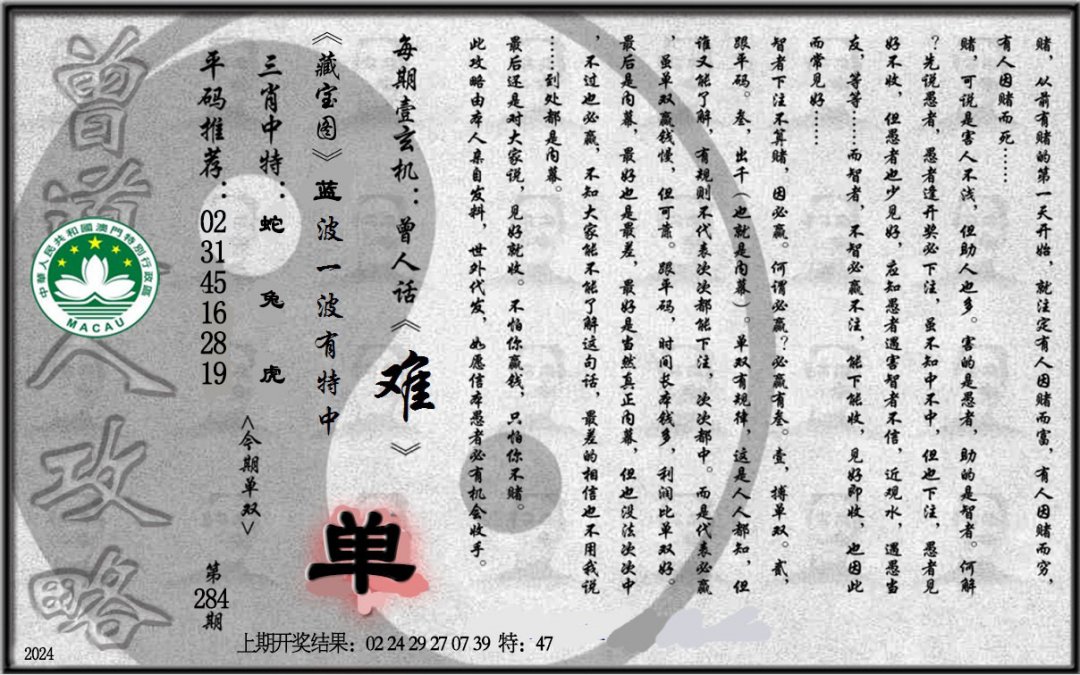 赌，从前有赌的第一天开始，就注定有人因赌而富，有人因赌而穷，
有人因赌而死……
赌，可说是害人不浅，但助人也多。害的是愚者，助的是智者。何解
？先说愚者，愚者逢开奖必下注，虽不知中不中，但也下注，愚者见
好不收，但愚者也少见好，应知愚者遇害智者不信，近观水，遇愚当
友，等等……而智者，不智必赢不注，能下能收，见好即收，也因此
而常见好……
智者下注不算赌，因必赢。何谓必赢？必赢有叁。壹，搏单双。贰，
跟平码。叁，出千（也就是内幕）。单双有规律，这是人人都知，但
谁又能了解，有规则不代表次次都能下注，次次都中。而是代表必赢
，虽单双赢钱慢，但可靠。跟平码，时间长本钱多，利润比单双好。
最后是内幕，最好也是最差，最好是当然真正内幕，但也没法次次中
，不过也必赢，不知大家能不能了解这句话，最差的相信也不用我说
……到处都是内幕。
最后还是对大家说，见好就收。不怕你赢钱，只怕你不赌。
此攻略由本人亲自发料，世外代发，如愿信本愚者必有机会收手。
每期壹玄机：曾人话《难》
《藏宝图》蓝波一波有特中
三肖中特：蛇 兔 虎
平码推荐：02 31 45 16 28 19
<今期单双>
单
第284期
曾道人攻略
中華人民共和國澳門特別行政區
MACAU
上期开奖结果：02 24 29 27 07 39 特：47
2024